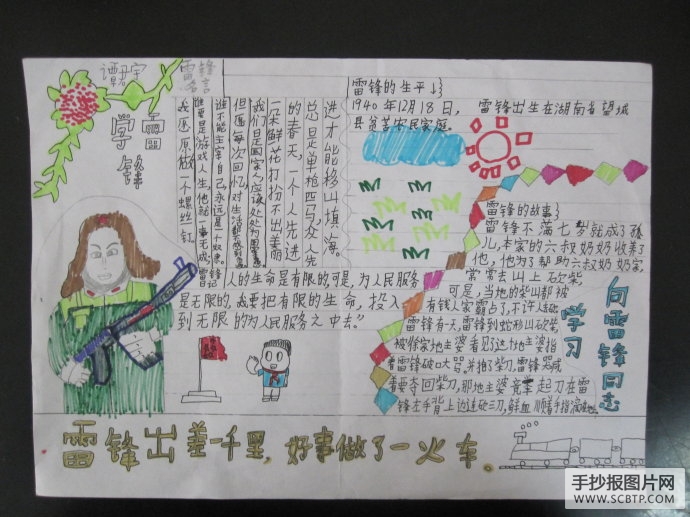 谭君宇
学雷锋
雷锋名言
谁要是游戏人生，他就一事无成，
谁不能主宰自己，永远是一奴隶。
我愿做一个螺丝钉。
但愿每次回忆，对生活都
我们是国家人应该处处为国家
一朵鲜花打扮不出美丽
的春天，一个人先进
总是单枪匹马，众人先
进才能移山填海。
人的生命是有限的可是，为人民服务
是无限的，我要把有限的生命，投入
到无限的为人民服务之中去。"
雷锋的生平
1940年12月18日，雷锋出生在湖南省望城
县贫苦农民家庭。
雷锋的故事
雷锋不满七岁就成了孤
儿，本家的六叔奶奶收养了
他，他为了帮助六叔奶奶家，
常常去山上砍柴，
可是，当地的柴山都被
有钱人家霸占了，不许人砍
雷锋有一天，雷锋到蛇形山砍柴，
被徐家地主婆看见了这个地主婆指
着雷锋破口大骂，并抢了柴刀，雷锋哭喊
着要夺回柴刀，那地主婆竟拿起刀在雷
锋左手背上边连砍三刀，鲜血顺着手指滴
向雷锋同志
学习
雷锋出差一千里，好事做了一火车。
手抄报图片网
WWW.SCBTP.COM